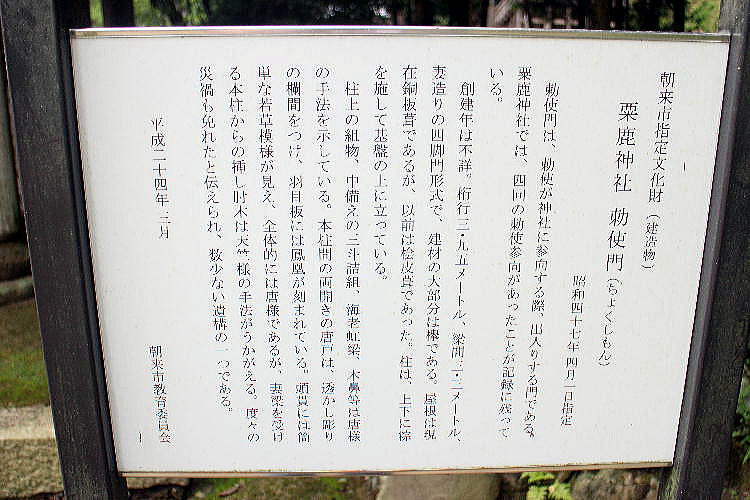 朝来市指定文化財（建造物）
粟鹿神社 勅使門（ちょくしもん）
昭和四十七年四月一日指定
勅使門は、勅使が神社に参向する際、出入りする門である。
粟鹿神社では、四回の勅使参向があったことが記録に残って
いる。
創建年は不詳。桁行三・九五メートル、梁間三・二メートル、
妻造りの四脚門形式で、建材の大部分は欅である。屋根は現
在銅板葺であるが、以前は桧皮葺であった。柱は、上下に粽
を施して基盤の上に立っている。
柱上の組物、中備えの三斗詰組、海老虹梁、木鼻等は唐様
の手法を示している。本柱間の両開きの唐戸は、透かし彫り
の欄間をつけ、羽目板には鳳凰が刻まれている。頭貫には簡
単な若草模様が見え、全体的には唐様であるが、妻梁を受け
る本柱からの挿し肘木は天竺様の手法がうかがえる。度々の
災禍も免れたと伝えられ、数少ない遺構の一つである。
平成二十四年三月
朝来市教育委員会